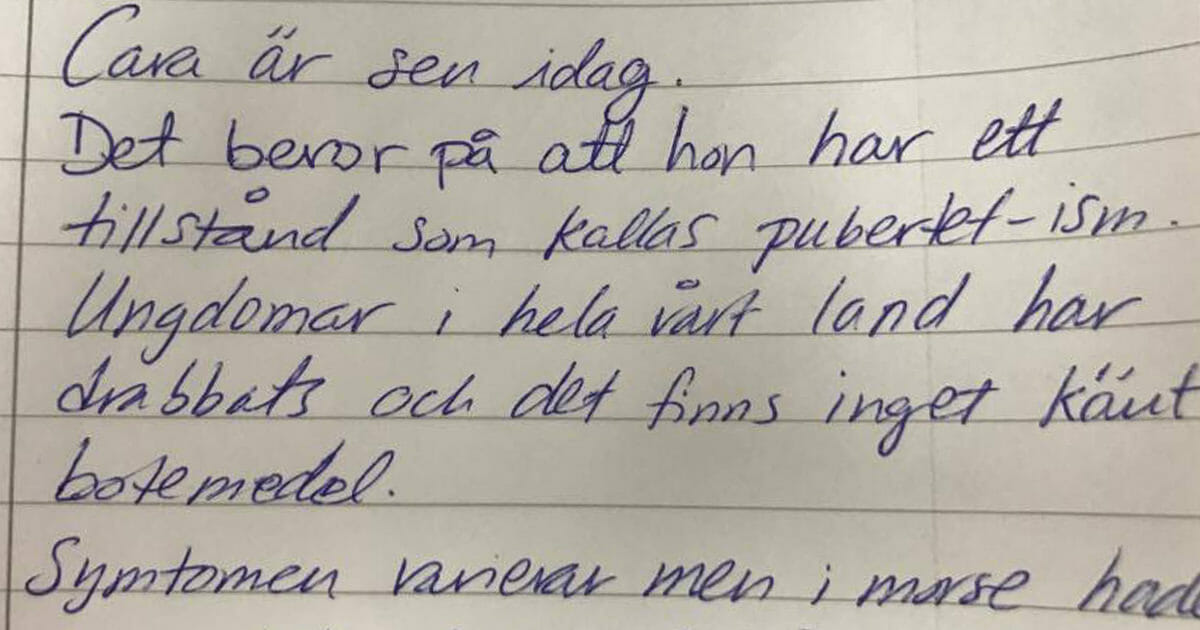 Cara är sen idag.
Det beror på att hon har ett
tillstånd som kallas pubertet-ism.
Ungdomar i hela vårt land har
drabbats och det finns inget känt
botemedel.
Symtomen varierar men i morse hade